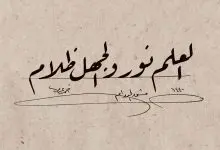 العلم نور والجهل ظلام